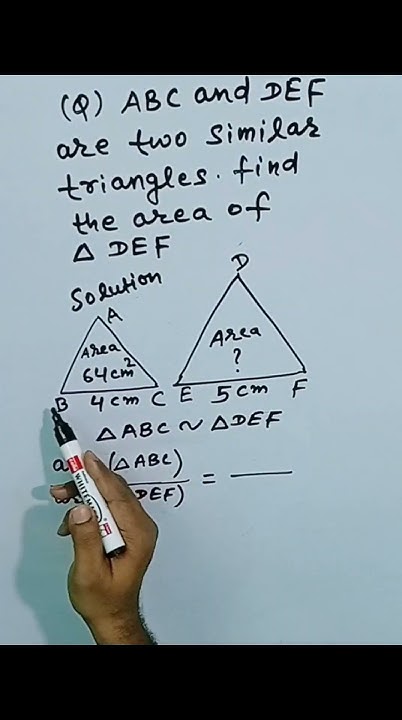 (Q) ABC and DEF
are two similar
triangles. find
the area of
△ DEF
Solution
A
D
Area
64cm²
Area
?
B 4cm C E 5cm F
△ABC ~ △DEF
(△ABC)
DEF) =